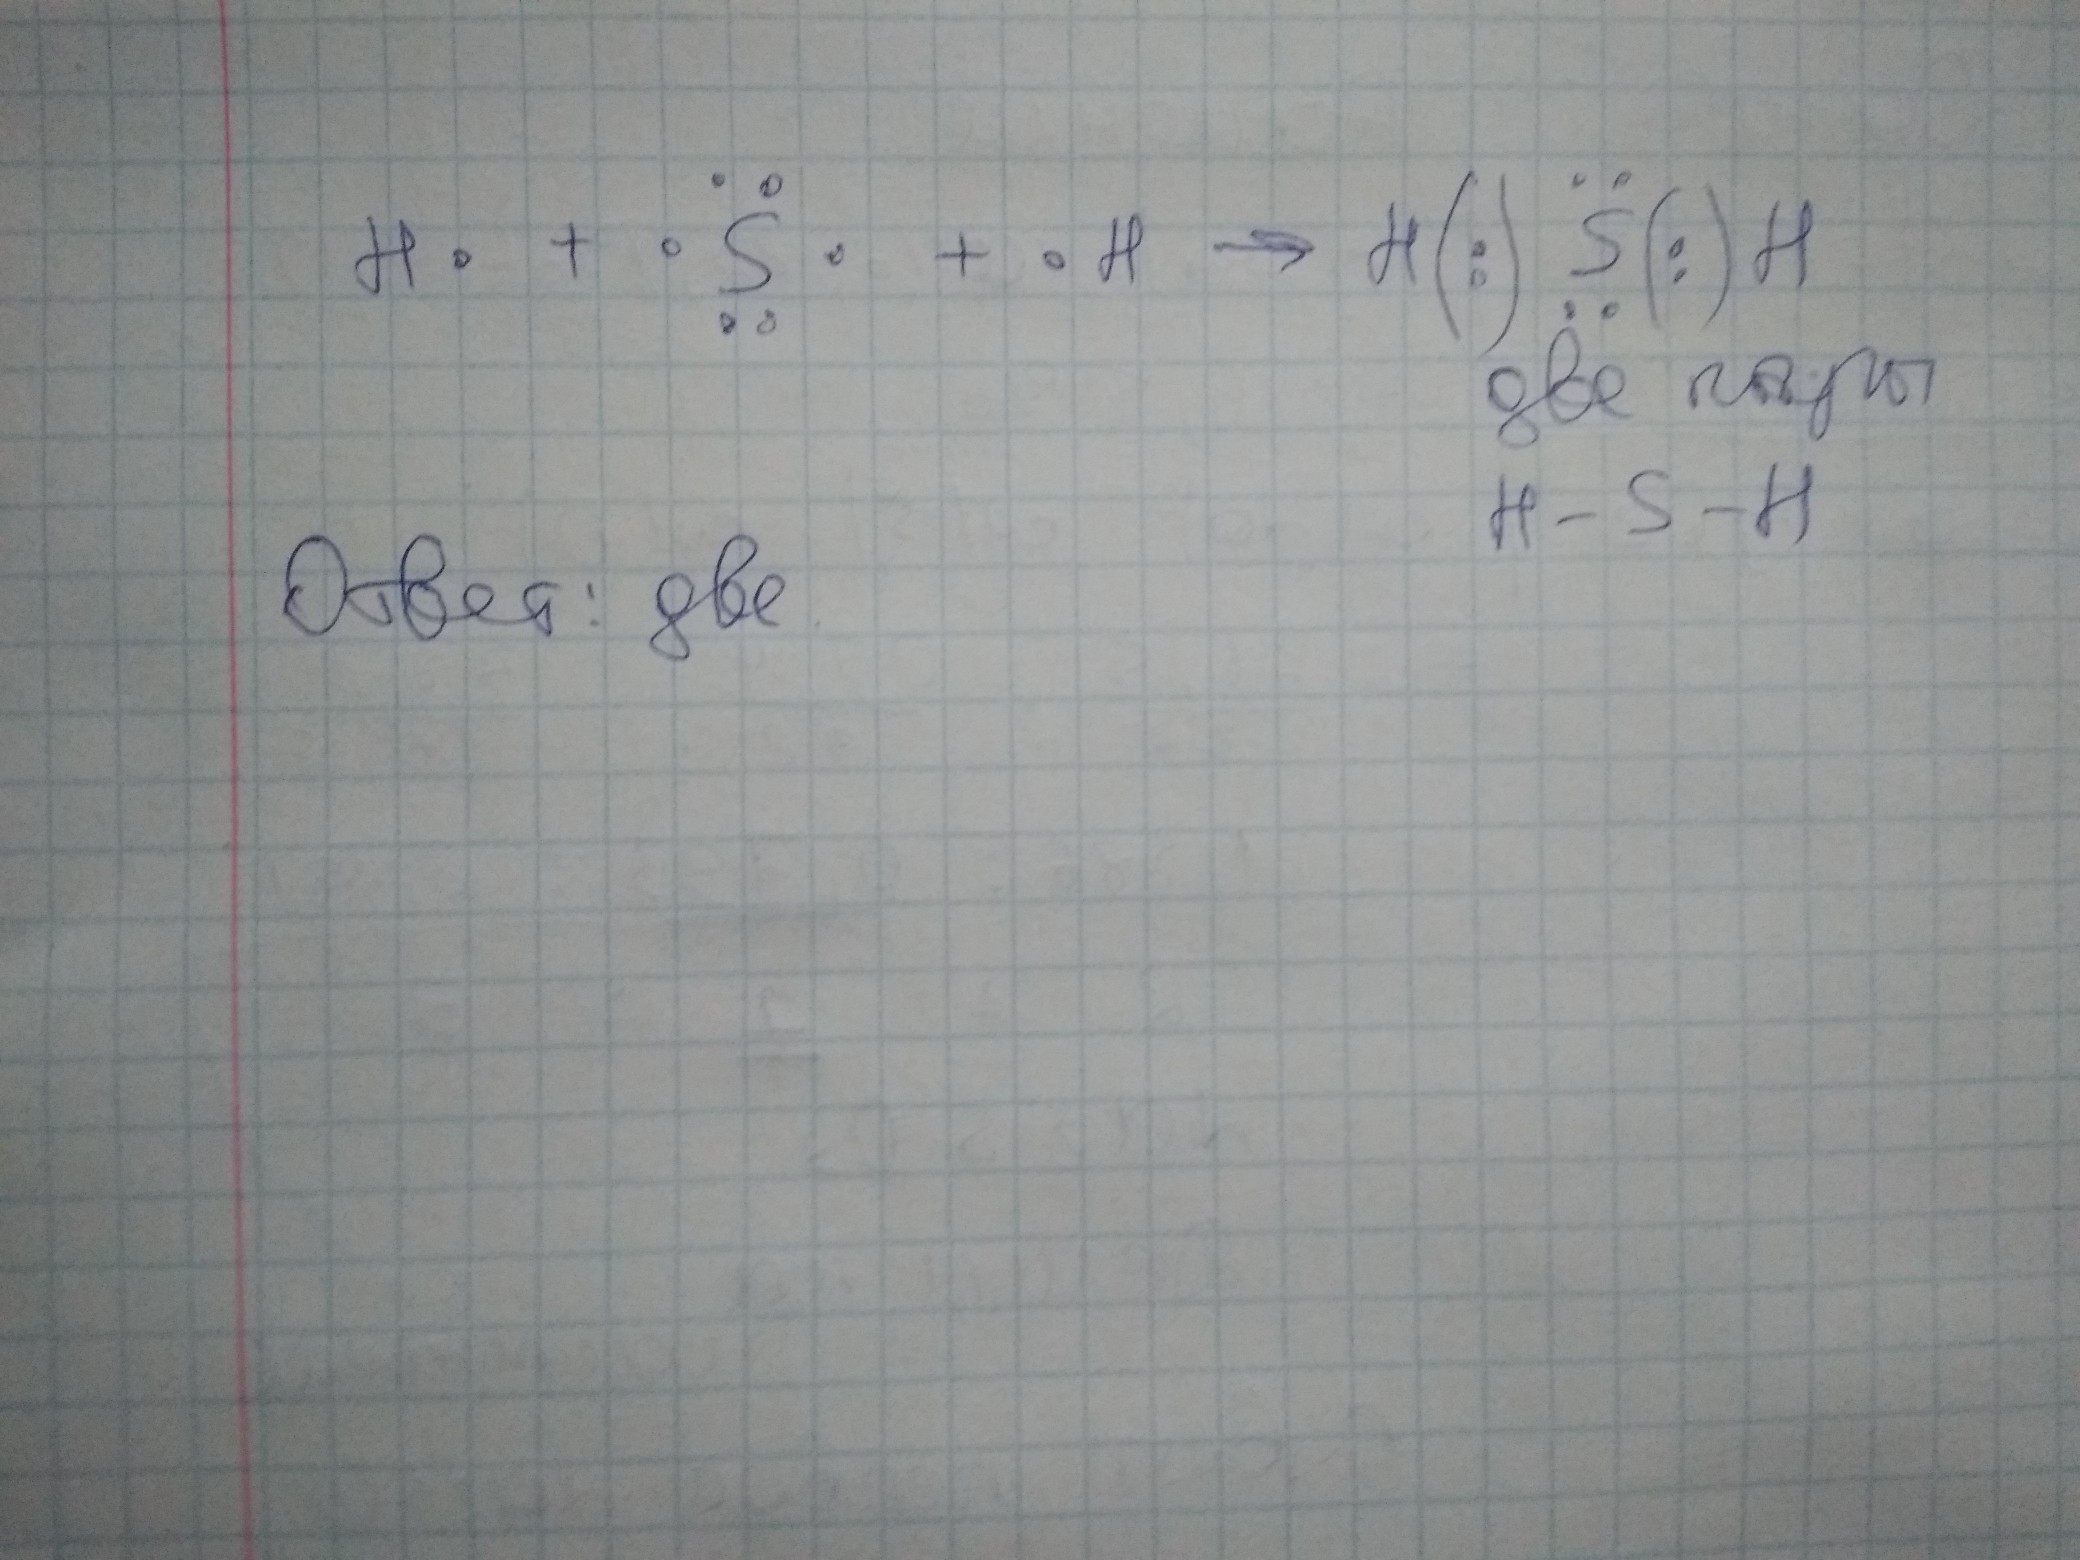 H· + ·S· + ·H → H(:)S(:)H
две пары
H – S – H
Ответ: две